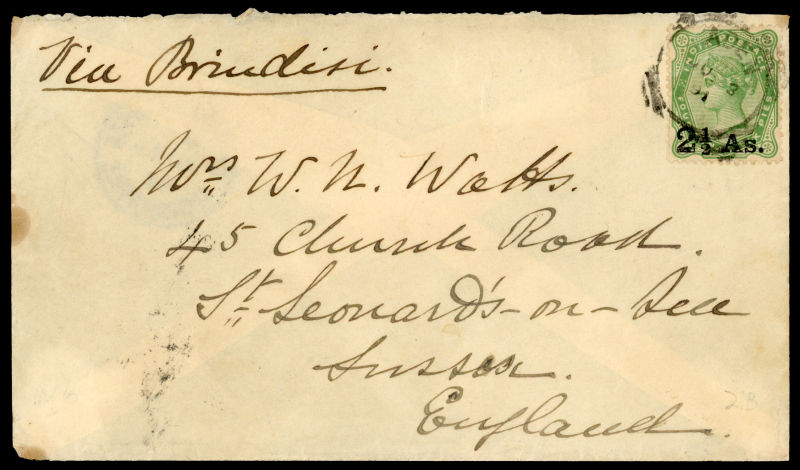 Via Brindisi.
INDIA POSTAGE
2½ As.
Mrs W. H. Watts.
45 Church Road.
St. Leonard's-on-Sea
Sussex.
England.